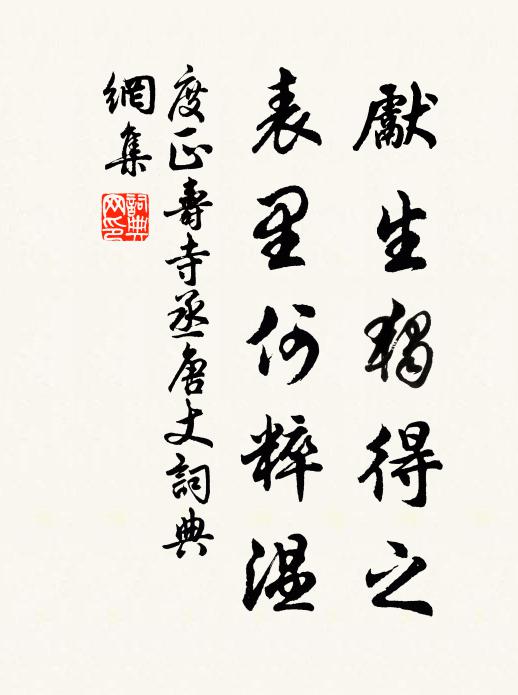 獻生獨得之
表里何粹温
度正壽寺丞唐丈詞典
網集
詞典
网印